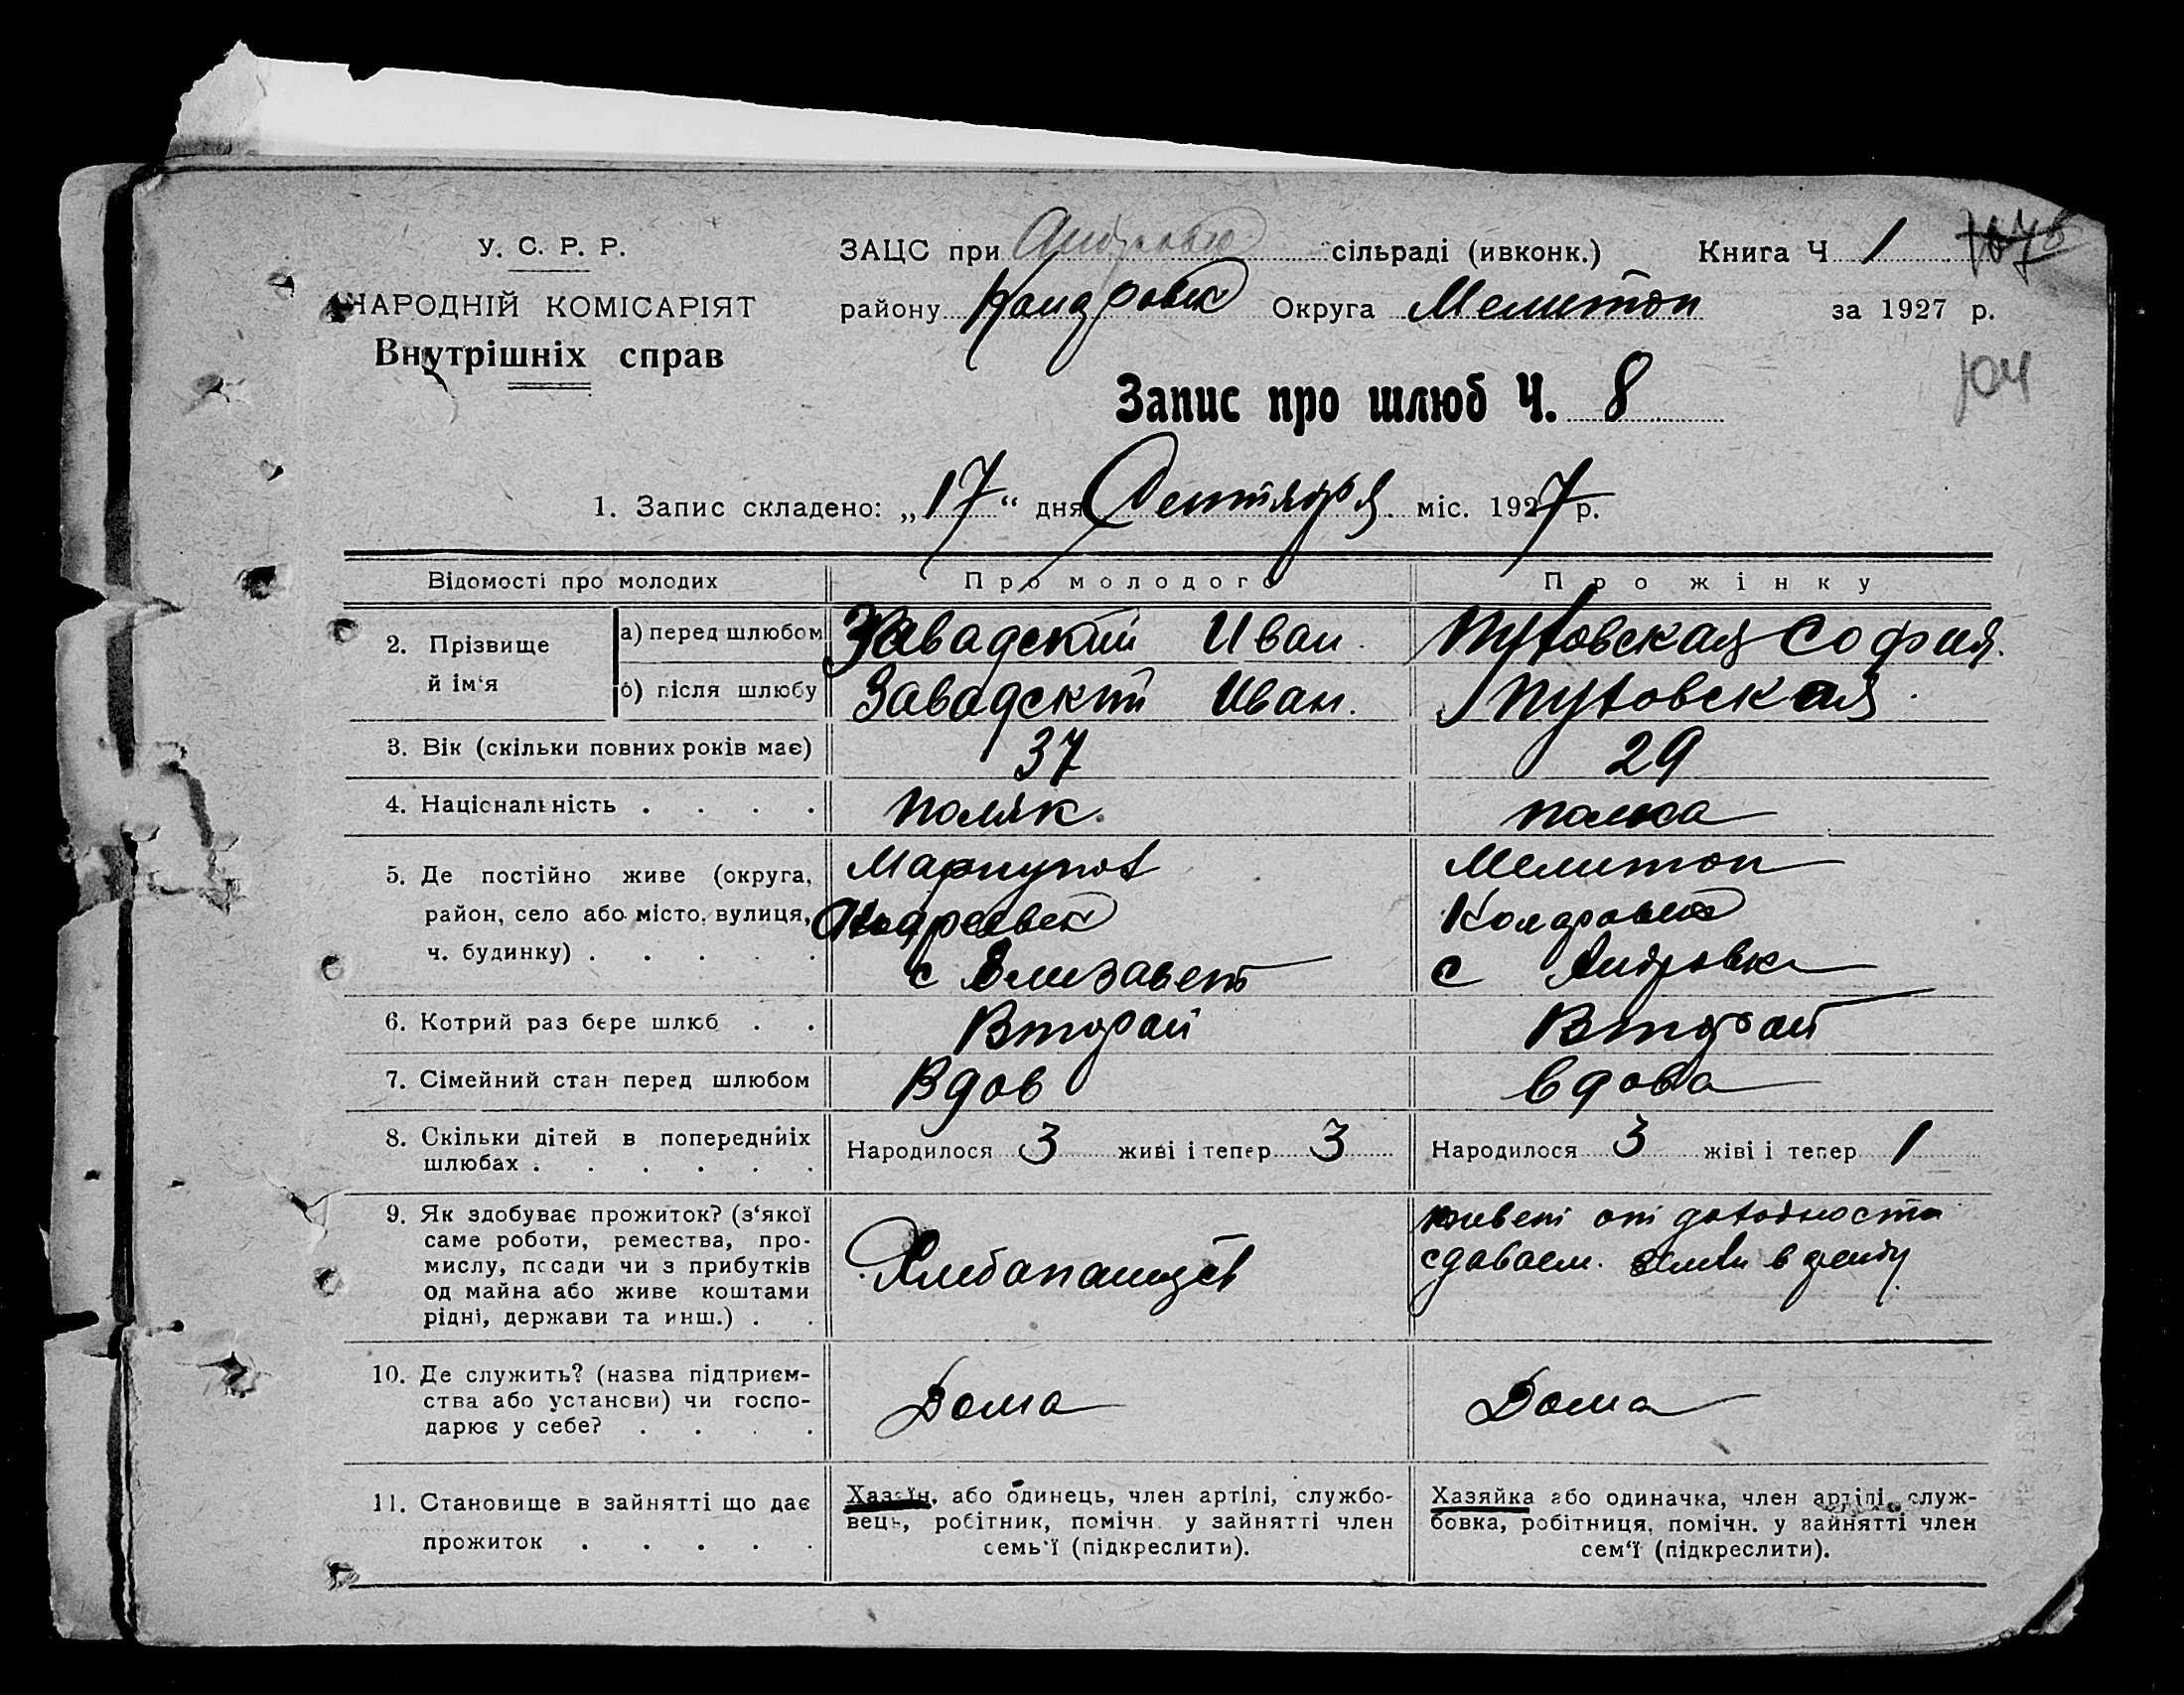 У. С. Р. Р.
НАРОДНІЙ КОМІСАРІЯТ
Внутрішніх справ
ЗАЦС при Андровк сільраді (ивконк.) Книга Ч 1
району Округа Мелитоп за 1927 р.
104
Запис про шлюб Ч. 8
1. Запис складено: „17“ дня Сентября міс. 1927 р.
Відомості про молодих Про молодого Про жінку
2. Прізвище й ім‘я
а) перед шлюбом Завадский Иван Путовская София
б) після шлюбу Завадский Иван. Путовская
3. Вік (скільки повних років має) 37 29
4. Національність . . . . поляк полка
5. Де постійно живе (округа, район, село або місто, вулиця, ч. будинку) . . . . .
Мариупол
Андреевск
с Елизавет
Мелитоп
с Андровка
6. Котрий раз бере шлюб . . Второй Второй
7. Сімейний стан перед шлюбом Вдов вдова
8. Скільки дітей в попередніх шлюбах . . . . . .
Народилося 3 живі і тепер 3
Народилося 3 жіві і тепер 1
9. Як здобуває прожиток? (з‘якої
саме роботи, ремества, про-
мислу, посади чи з прибутків
од майна або живе коштами
рідні, держави та инш.) . .
Хлебопашец
живет от доходности
сдаваем. земли в
10. Де служить? (назва підприєм-
ства або установи) чи госпо-
дарює у себе? . . . .
Дома
Дома
11. Становище в зайнятті що дає
прожиток . . . . .
Хазяїн, або одинець, член артілі, службо-
вець, робітник, помічн. у зайнятті член
семь‘ї (підкреслити).
Хазяйка або одиначка, член артілі, служ-
бовка, робітниця, помічн. у зайнятті член
сем‘ї (підкреслити).